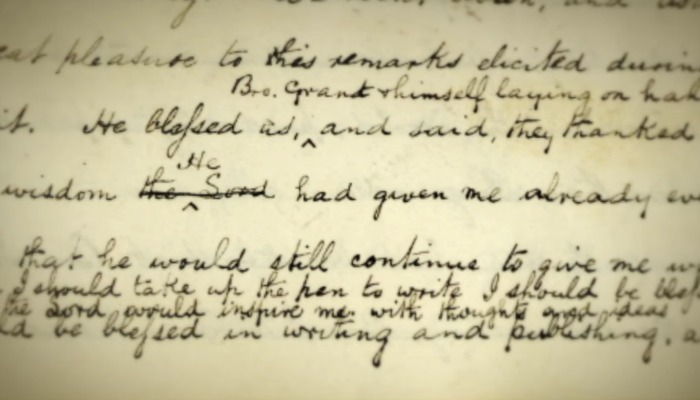 eat pleasure to his remarks elicited during
Bro. Grant & himself laying on ha
it. He blessed us, ^ and said, they thanked
He
wisdom the Lord had given me already
that he would still continue to give me
I should take up the pen to write I should be bles
the Lord would inspire me with thoughts and ideas
ld be blessed in writing and publishing, a